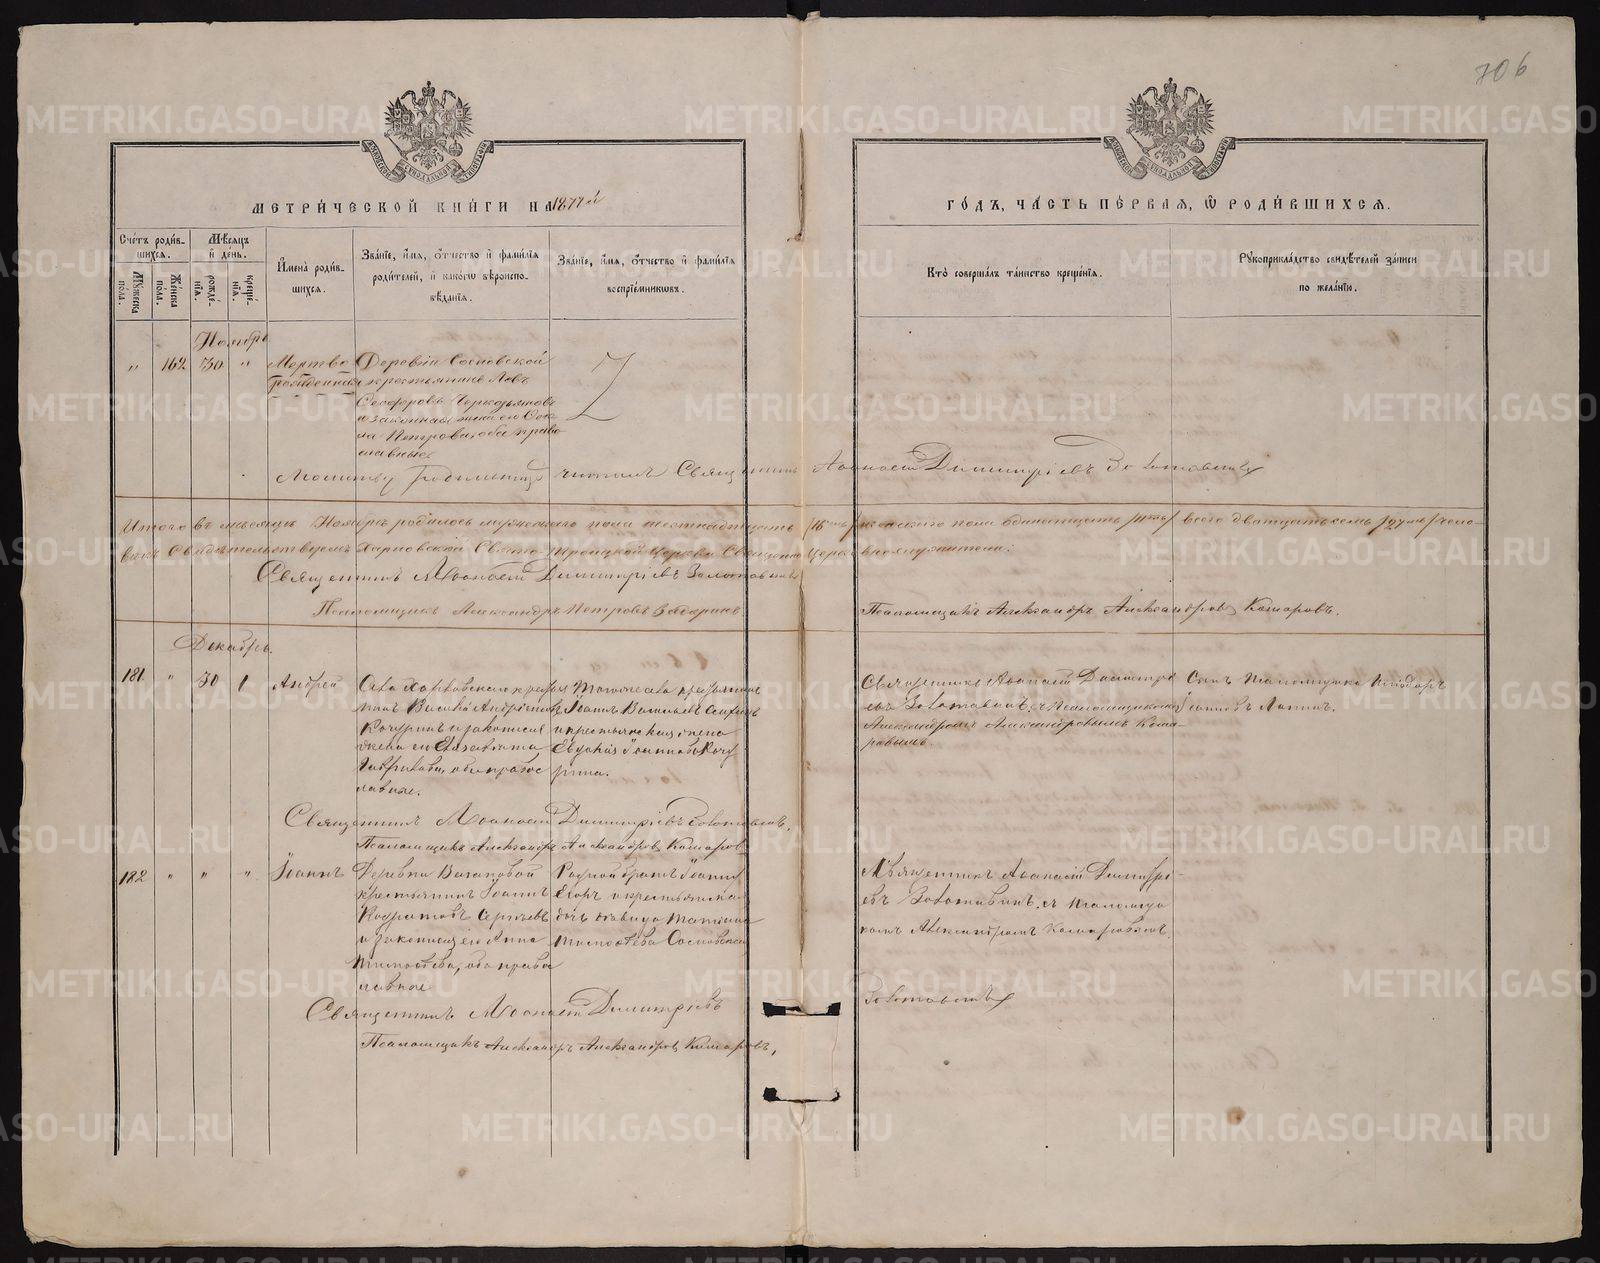 706
МЕТРИ́ЧЕСКОЙ КНИ́ГИ НА 1877й
ГО́ДЪ, ЧА́СТЬ ПЕ́РВАЯ, Ѽ РОДИ́ВШИХСЯ.
Сче́тъ роди́вшихся.
Му́жеска по́ла.
Же́нска по́ла.
Мѣ́сяцъ и҆ де́нь.
рожде́нїя.
креще́нїя.
И҆мена̀ роди́вшихся.
Зва́нїе, и҆́мя, ѻ҆́тчество и҆ фами́лїя роди́телей, и҆ како́гѡ вѣроисповѣ́данїя.
Зва́нїе, и҆́мя, ѻ҆́тчество и҆ фами́лїя воспрїе́мникѡвъ.
Кто̀ соверша́лъ та́инство креще́нїя.
Рꙋкоприкла́дство свидѣ́телей за́писи по жела́нїю.
Ноябрь
" 162 30 " Мертво
рожденная
Деревни Сосновской
крестьянинъ Левъ
и законная жена его
Петрова, оба право
славные
Молитву родильнице читалъ Священникъ Аѳанасій Димитріевъ Золотавинъ
Итого въ мѣсяцѣ Ноябрѣ родилось мужескаго пола шестнадцать /16ть/ женскаго пола одинатцать /11ть/ всего двадцать семь /27мь/ чело-
вѣкъ Свидѣтельствуемъ Свято-Троицкой Церкви Священно Церковнослужители:
Священникъ Аѳанасій Димитріевъ Золотавинъ
Псаломщикъ Александръ Петровъ
Псаломщикъ Александръ Александровъ Комаровъ.
Декабрь.
181 " 30 1 Андрей
нинъ Василій Андреевъ
Кочуринъ и законная
жена его Елизавета
Гаврилова, оба правос
лавные.
Іоаннъ Васильевъ
и крестьянская жена
Евдокія Іоаннова Кочу
рина.
Священникъ Аѳанасій Димитрі
евъ Золотавинъ, съ Псаломщикомъ
Александромъ Александровымъ Кома-
ровымъ.
Священникъ Аѳанасій Димитріевъ Золотавинъ,
Псаломщикъ Александръ Александровъ Комаровъ
182 " " " Іоаннъ
Деревни Вагановой
крестьянинъ Іоаннъ
Кодратовъ Сергѣевъ
и законная его Анна
Тимоѳеева, оба право
славные
Родной братъ Іоанна
Егоръ и крестьянская
дочь дѣвица Татіана
Тимоѳеева Сосновская
Священникъ Аѳанасій Димитрі-
евъ Золотавинъ, съ псаломщи
комъ Александромъ Комаровымъ.
Священникъ Аѳанасій Димитріевъ Золотавинъ
Псаломщикъ Александръ Александровъ Комаровъ,
METRIKI.GASO-URAL.RU